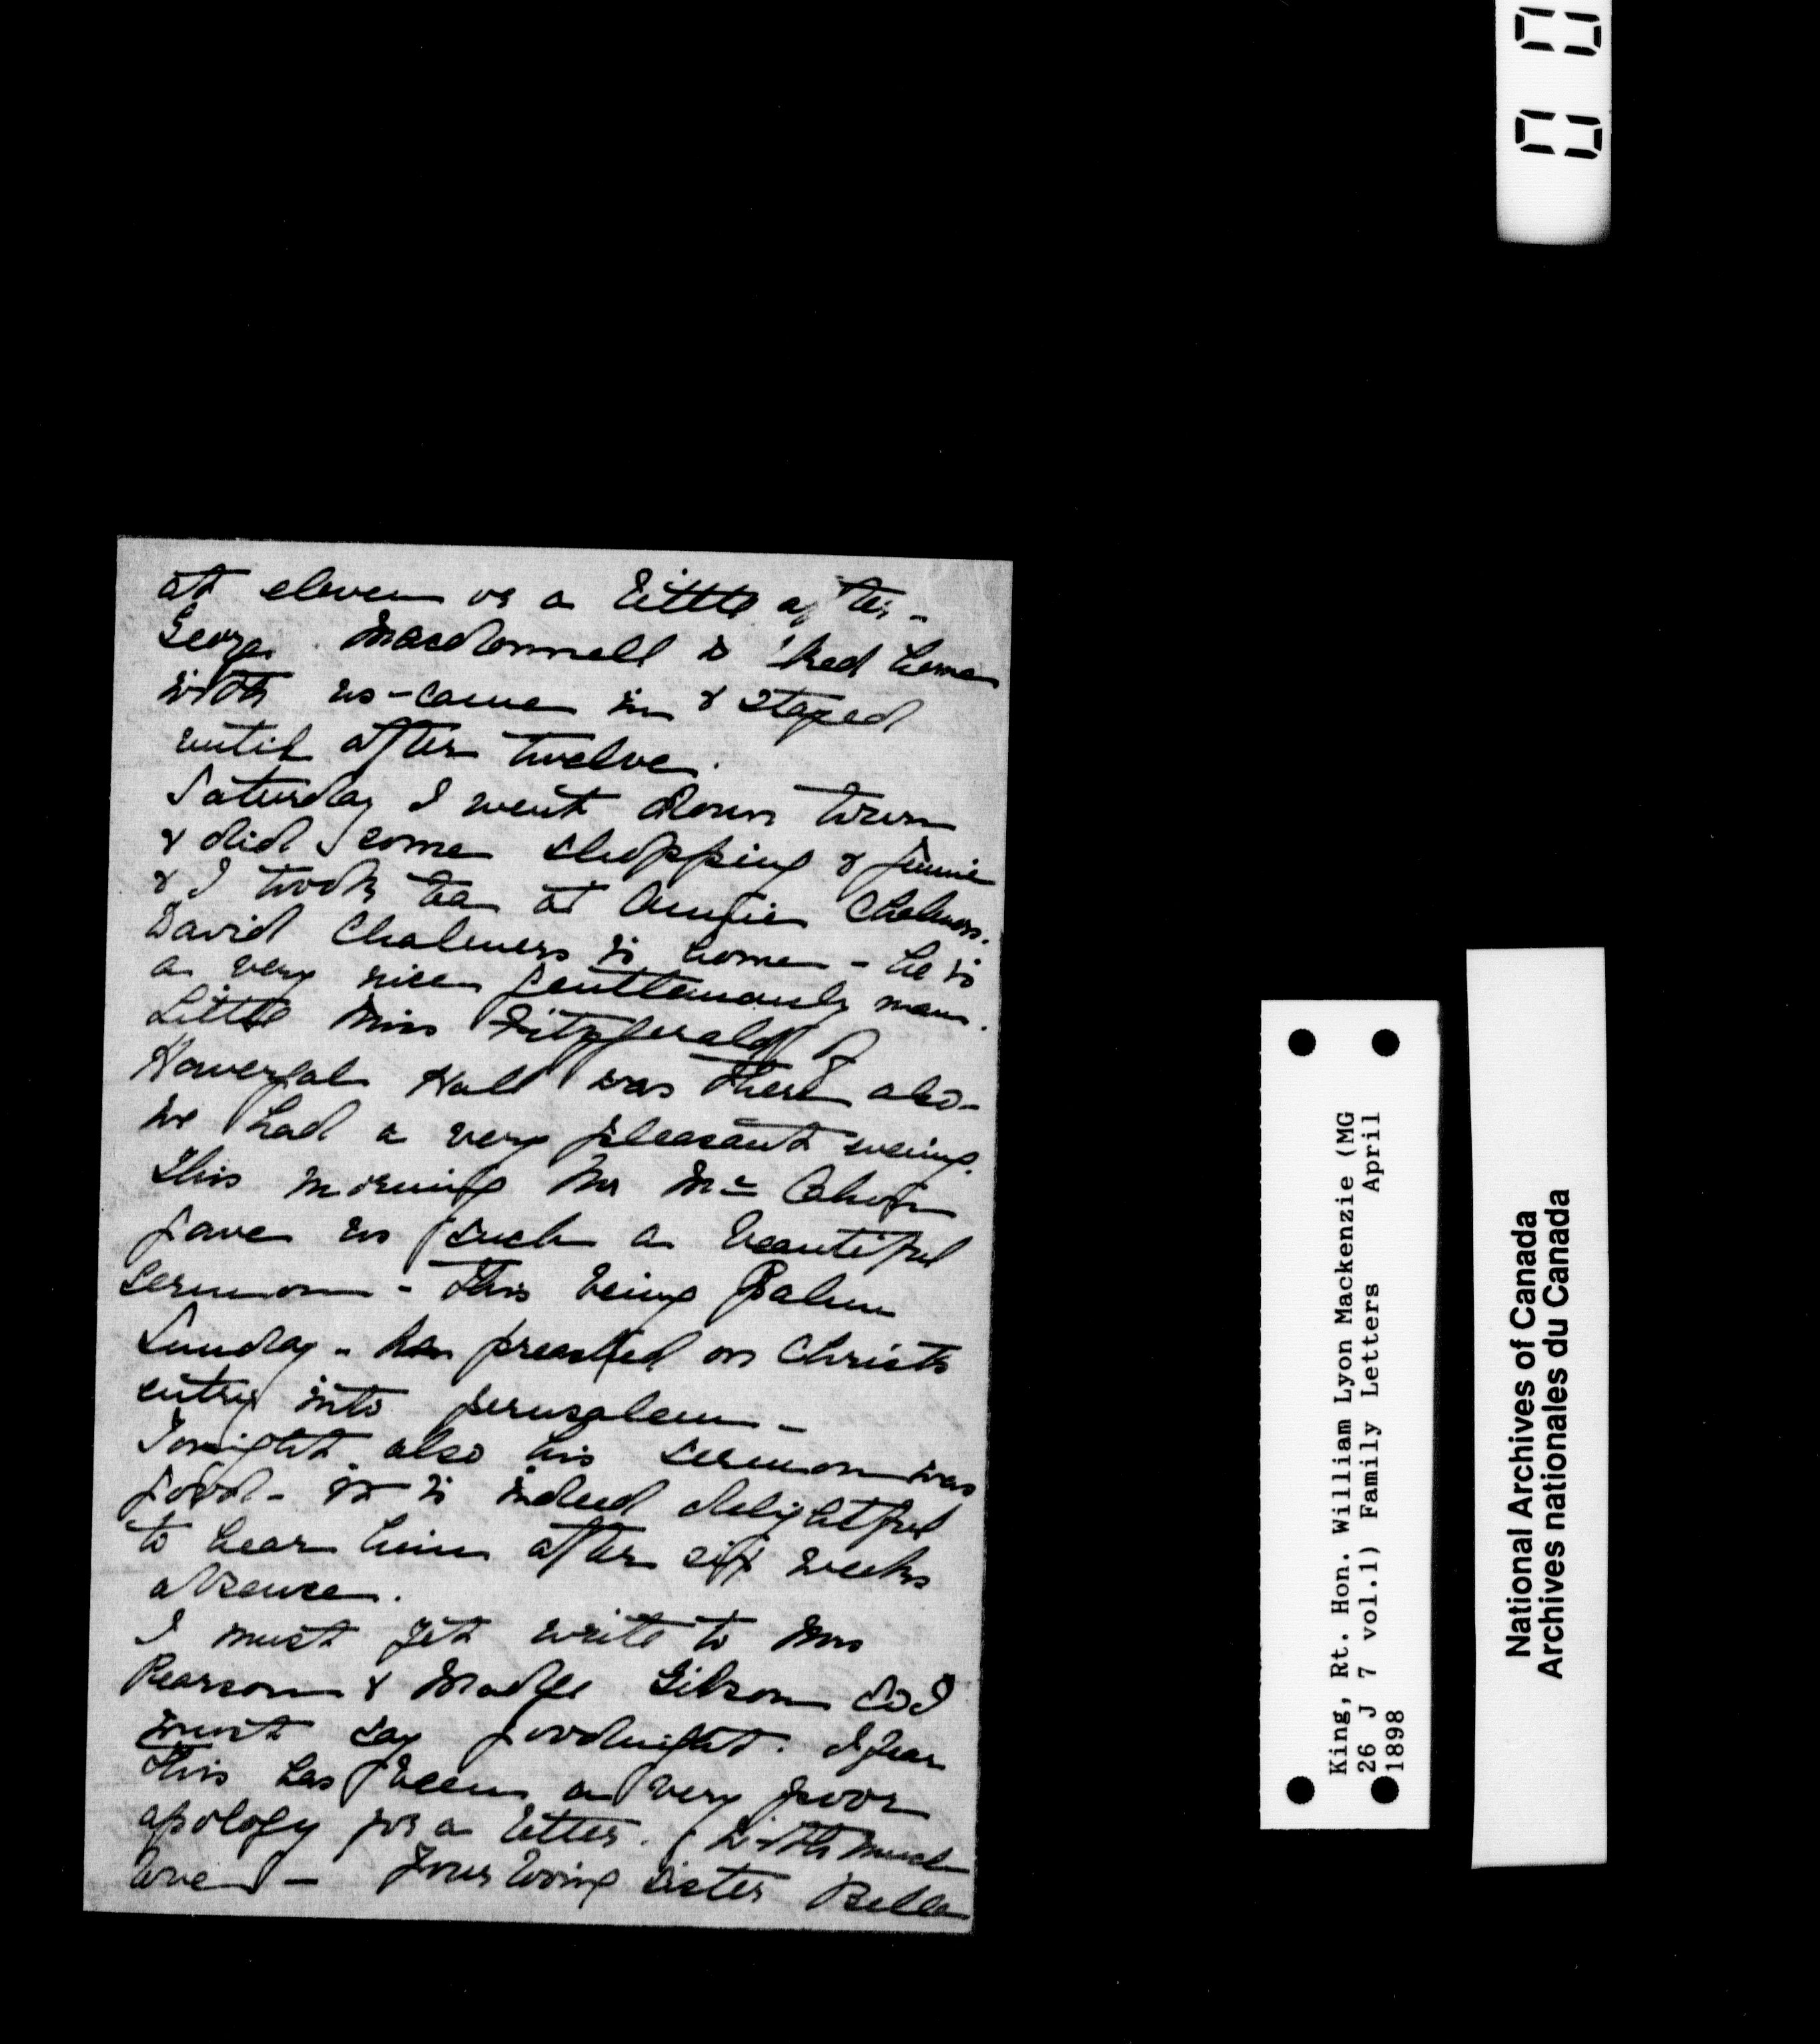 at eleven or a little after -
George Macdonnell walked home
with us - came in & stayed
until after twelve.
Saturday I went down town
& did some shopping & Jennie
& I took tea at Auntie Chalmers.
David Chalmers is home - he is
a very nice gentlemanly man.
Little Miss Fitzgerald of
Havergal Hall was there also -
We had a very pleasant evening.
This morning Mr Mc
gave us such a beautiful
sermon - This being Palm
Sunday - he preached on Christs
entry into Jerusalem -
Tonight also his sermon was
good - it is indeed delightful
to hear him after six weeks
absence.
I must yet write to Mrs
Pearson & Madge Gibson so I
must say goodnight. I fear
this has been a very poor
apology for a letter. With much
love - Your loving sister Bella
King, Rt. Hon. William Lyon Mackenzie (MG
26 J 7 vol.1) Family Letters April
1898
National Archives of Canada
Archives nationales du Canada